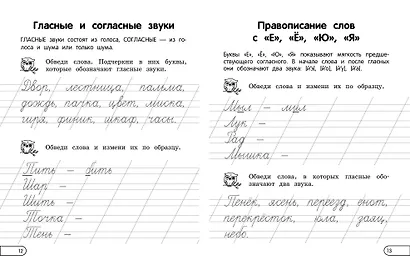 Гласные и согласные звуки
ГЛАСНЫЕ звуки состоят из голоса, СОГЛАСНЫЕ — из го-
лоса и шума или только шума.
Обведи слова. Подчеркни в них буквы,
которые обозначают гласные звуки.
Двор, лестница, пальма,
дождь, почка, цвет, мишка,
шря, финик, шкаф, часы.
Обведи слова и измени их по образцу.
Пить — бить
Шар —
Шить —
Точка —
Тень —
12
Правописание слов
с «Е», «Ё», «Ю», «Я»
Буквы «Е», «Ё», «Ю», «Я» показывают мягкость предше-
ствующего согласного. В начале слова и после гласных
они обозначают два звука:
Обведи слова и измени их по образцу.
Мыл — мил
Лук —
Рад —
Мышка —
Обведи слова, в которых гласные обо-
значают два звука.
Пенёк, ясень, переезд, енот,
перекрёсток, юла, заяц,
небо.
13